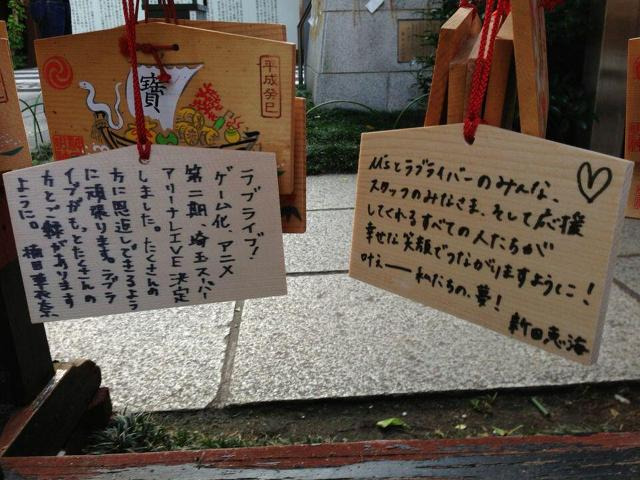 寶
平成癸巳
ラブライブ!
ゲーム化、アニメ
第二期、埼玉スーパー
アリーナLIVE決定
しました。たくさんの
方に恩返しできるよう
に頑張ります。ラブラ
イブがもっとたくさんの
方とご縁があります
ように。
μ'sとラブライバーのみんな、
スタッフのみなさま、そして応援
してくれるすべての人たちが
幸せな笑顔でつながりますように!
叶え――私たちの夢!
新田恵海